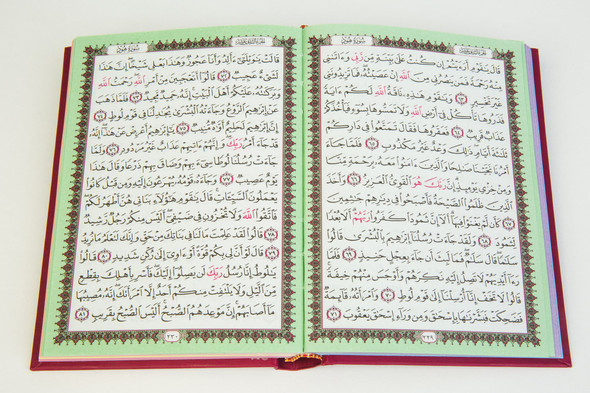 سُورَةُ هُودٍ
الجزء الثاني عشر
قَالَ يَٰقَوْمِ أَرَءَيْتُمْ إِن كُنتُ عَلَىٰ بَيِّنَةٍ مِّن رَّبِّي وَءَاتَىٰنِي
مِنْهُ رَحْمَةً فَمَن يَنصُرُنِي مِنَ ٱللَّهِ إِنْ عَصَيْتُهُۥۖ فَمَا تَزِيدُونَنِي
غَيْرَ تَخْسِيرٖ ٦٣ وَيَٰقَوْمِ هَٰذِهِۦ نَاقَةُ ٱللَّهِ لَكُمْ ءَايَةٗۖ
فَذَرُوهَا تَأْكُلْ فِيٓ أَرْضِ ٱللَّهِۖ وَلَا تَمَسُّوهَا بِسُوٓءٖ فَيَأْخُذَكُمْ
عَذَابٞ قَرِيبٞ ٦٤ فَعَقَرُوهَا فَقَالَ تَمَتَّعُواْ فِي دَارِكُمْ
ثَلَٰثَةَ أَيَّامٖۖ ذَٰلِكَ وَعْدٌ غَيْرُ مَكْذُوبٖ ٦٥ فَلَمَّا جَآءَ
أَمْرُنَا نَجَّيْنَا صَٰلِحٗا وَٱلَّذِينَ ءَامَنُواْ مَعَهُۥ بِرَحْمَةٖ مِّنَّا
وَمِنْ خِزْيِ يَوْمِئِذٍۚ إِنَّ رَبَّكَ هُوَ ٱلْقَوِيُّ ٱلْعَزِيزُ ٦٦ وَأَخَذَ
ٱلَّذِينَ ظَلَمُواْ ٱلصَّيْحَةُ فَأَصْبَحُواْ فِي دِيَٰرِهِمْ جَٰثِمِينَ
٦٧ كَأَن لَّمْ يَغْنَوْاْ فِيهَآۗ أَلَآ إِنَّ ثَمُودَاْ كَفَرُواْ رَبَّهُمْۗ أَلَا بُعْدٗا
لِّثَمُودَ ٦٨ وَلَقَدْ جَآءَتْ رُسُلُنَآ إِبْرَٰهِيمَ بِٱلْبُشْرَىٰ قَالُواْ
سَلَٰمٗاۖ قَالَ سَلَٰمٞۖ فَمَا لَبِثَ أَن جَآءَ بِعِجْلٍ حَنِيذٖ ٦٩ فَلَمَّا
رَءَآ أَيْدِيَهُمْ لَا تَصِلُ إِلَيْهِ نَكِرَهُمْ وَأَوْجَسَ مِنْهُمْ خِيفَةٗۚ
قَالُواْ لَا تَخَفْ إِنَّآ أُرْسِلْنَآ إِلَىٰ قَوْمِ لُوطٖ ٧٠ وَٱمْرَأَتُهُۥ قَآئِمَةٞ
فَضَحِكَتْ فَبَشَّرْنَٰهَا بِإِسْحَٰقَ وَمِن وَرَآءِ إِسْحَٰقَ يَعْقُوبَ ٧١
٢٢٩
الجزء الثاني عشر
سُورَةُ هُودٍ
قَالَتْ يَٰوَيْلَتَىٰٓ ءَأَلِدُ وَأَنَا۠ عَجُوزٞ وَهَٰذَا بَعْلِي شَيْخًاۖ إِنَّ هَٰذَا
لَشَيْءٌ عَجِيبٞ ٧٢ قَالُوٓاْ أَتَعْجَبِينَ مِنْ أَمْرِ ٱللَّهِۖ رَحْمَتُ ٱللَّهِ
وَبَرَكَٰتُهُۥ عَلَيْكُمْ أَهْلَ ٱلْبَيْتِۚ إِنَّهُۥ حَمِيدٞ مَّجِيدٞ ٧٣ فَلَمَّا ذَهَبَ
عَنْ إِبْرَٰهِيمَ ٱلرَّوْعُ وَجَآءَتْهُ ٱلْبُشْرَىٰ يُجَٰدِلُنَا فِي قَوْمِ لُوطٍ ٧٤
إِنَّ إِبْرَٰهِيمَ لَحَلِيمٌ أَوَّٰهٞ مُّنِيبٞ ٧٥ يَٰٓإِبْرَٰهِيمُ أَعْرِضْ عَنْ هَٰذَآۖ إِنَّهُۥ
قَدْ جَآءَ أَمْرُ رَبِّكَۖ وَإِنَّهُمْ ءَاتِيهِمْ عَذَابٌ غَيْرُ مَرْدُودٖ ٧٦ وَلَمَّا
جَآءَتْ رُسُلُنَا لُوطٗا سِيٓءَ بِهِمْ وَضَاقَ بِهِمْ ذَرْعٗا وَقَالَ هَٰذَا
يَوْمٌ عَصِيبٞ ٧٧ وَجَآءَهُۥ قَوْمُهُۥ يُهْرَعُونَ إِلَيْهِ وَمِن قَبْلُ كَانُواْ
يَعْمَلُونَ ٱلسَّيِّـَٔاتِۚ قَالَ يَٰقَوْمِ هَٰٓؤُلَآءِ بَنَاتِي هُنَّ أَطْهَرُ لَكُمْۖ
فَٱتَّقُواْ ٱللَّهَ وَلَا تُخْزُونِ فِي ضَيْفِيٓۖ أَلَيْسَ مِنكُمْ رَجُلٞ رَّشِيدٞ
٧٨ قَالُواْ لَقَدْ عَلِمْتَ مَا لَنَا فِي بَنَاتِكَ مِنْ حَقّٖ وَإِنَّكَ لَتَعْلَمُ مَا نُرِيدُ
٧٩ قَالَ لَوْ أَنَّ لِي بِكُمْ قُوَّةً أَوْ ءَاوِيٓ إِلَىٰ رُكْنٖ شَدِيدٖ ٨٠ قَالُواْ
يَٰلُوطُ إِنَّا رُسُلُ رَبِّكَ لَن يَصِلُوٓاْ إِلَيْكَۖ فَأَسْرِ بِأَهْلِكَ بِقِطْعٖ
مِّنَ ٱلَّيْلِ وَلَا يَلْتَفِتْ مِنكُمْ أَحَدٌ إِلَّا ٱمْرَأَتَكَۖ إِنَّهُۥ مُصِيبُهَا
مَآ أَصَابَهُمْۚ إِنَّ مَوْعِدَهُمُ ٱلصُّبْحُۚ أَلَيْسَ ٱلصُّبْحُ بِقَرِيبٖ ٨١
٢٣٠